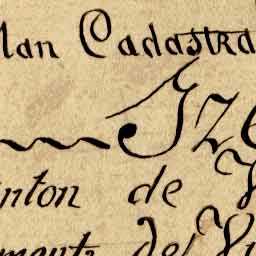 lan Cadastra
Ize
nton de V
ment de Vi